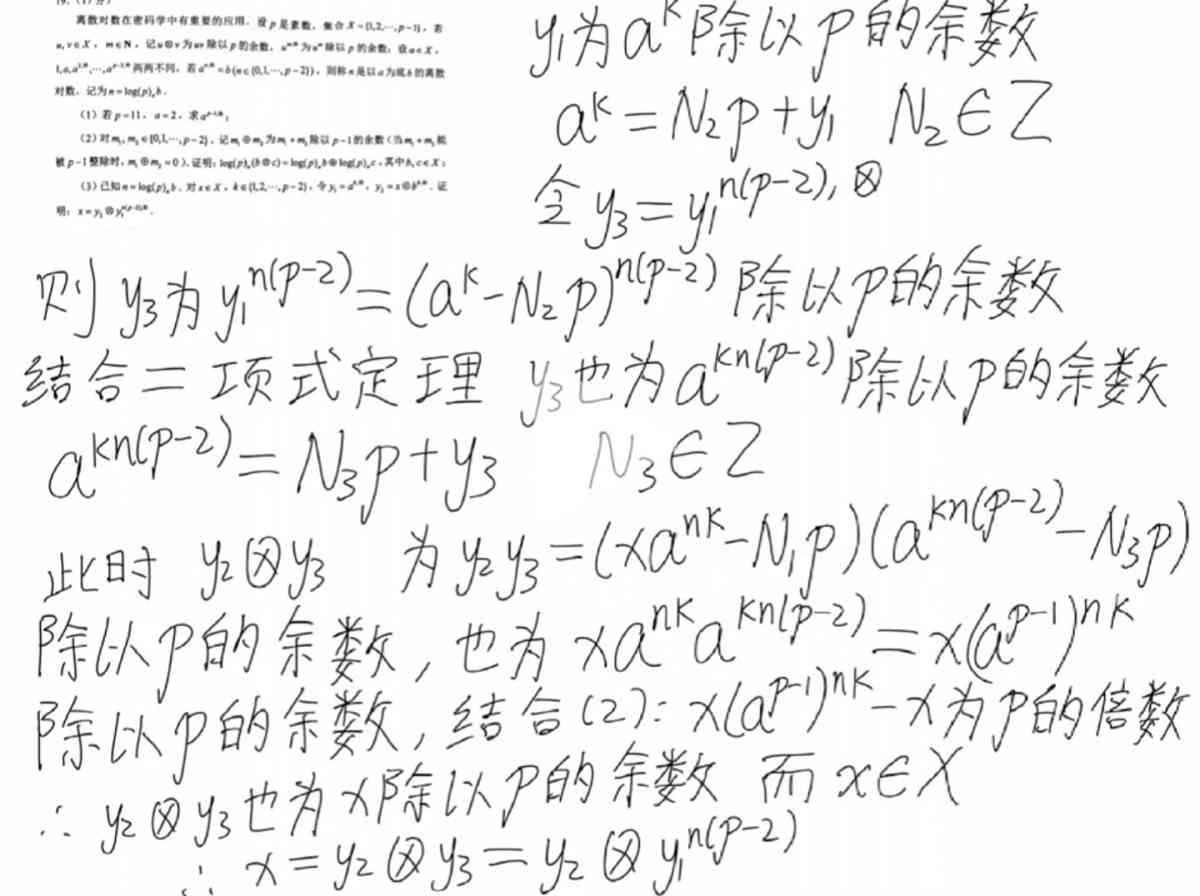 19.（17分）
离散对数在密码学中有重要的应用．设 p 是素数，集合 X={1,2,⋯,p−1}，若
u,v∈X，m∈N，记 u⊗v 为 uv 除以 p 的余数，u^{m,⊗} 为 u^m 除以 p 的余数；设 a∈X，
1,a,a^{2,⊗},⋯,a^{p−2,⊗} 两两不同，若 a^{n,⊗}=b(n∈{0,1,⋯,p−2})，则称 n 是以 a 为底 b 的离散
对数，记为 n=log(p)_a b．
（1）若 p=11，a=2，求 a^{p−1,⊗}；
（2）对 m₁,m₂∈{0,1,⋯,p−2}，记 m₁⊕m₂ 为 m₁+m₂ 除以 p−1 的余数（当 m₁+m₂ 能
被 p−1 整除时，m₁⊕m₂=0）．证明：log(p)_a(b⊗c)=log(p)_a b⊕log(p)_a c，其中 b,c∈X；
（3）已知 n=log(p)_a b．对 x∈X，k∈{1,2,⋯,p−2}，令 y₁=a^{k,⊗}，y₂=x⊗b^{k,⊗}．证
明：x=y₂⊗y₁^{n(p−2),⊗}．
y₁为a^k除以p的余数
a^k=N₂p+y₁ N₂∈Z
令y₃=y₁^{n(p-2),⊗}
则y₃为y₁^{n(p-2)}=(a^k-N₂p)^{n(p-2)}除以p的余数
结合二项式定理 y₃也为a^{kn(p-2)}除以p的余数
a^{kn(p-2)}=N₃p+y₃ N₃∈Z
此时 y₂⊗y₃ 为y₂y₃=(xa^{nk}-N₁p)(a^{kn(p-2)}-N₃p)
除以p的余数，也为xa^{nk}a^{kn(p-2)}=x(a^{p-1})^{nk}
除以p的余数，结合(2)：x(a^{p-1})^{nk}-x为p的倍数
∴ y₂⊗y₃也为x除以p的余数 而x∈X
∴ x=y₂⊗y₃=y₂⊗y₁^{n(p-2)}